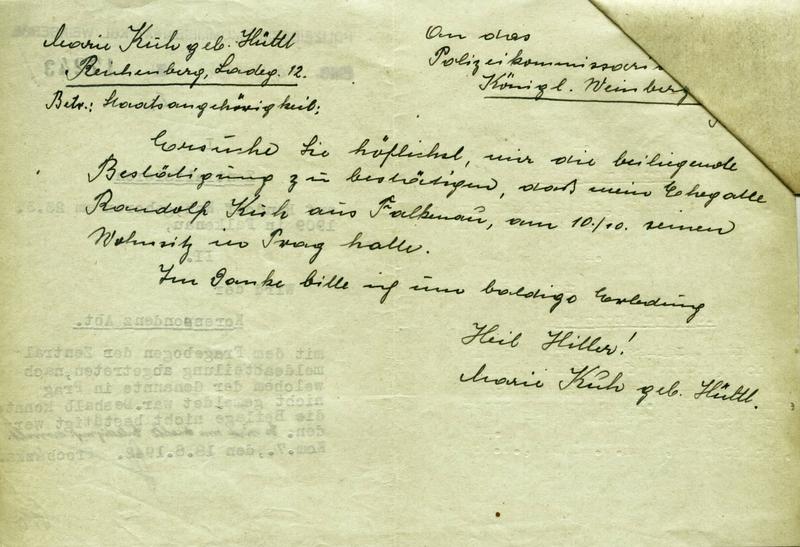 Marie Kuh geb. Hüttl
Reichenberg, Ladeg. 12.
Betr.: Staatsangehörigkeit;
An das
Polizeikommissari
Königl. Weinberg
Ersuche Sie höflichst, mir die beiliegende
Bestätigung zu bestätigen, daß mein Ehegatte
Randolf Kuh aus Falkenau, am 10./10. seinen
Wohnsitz in Prag hatte.
Im Danke bitte ich um baldige Erledung
Heil Hitler!
Marie Kuh geb. Hüttl.
1909
II.
Korrespondenz Abt.
mit dem Fragebogen der Zentral
meldeabteilung abgetreten, nach
welchem der Genannte in Prag
nicht gemeldet war. Deshalb konnt
die Beilage nicht bestätigt wer
den.
Kom. 7., den 18.8.1942.